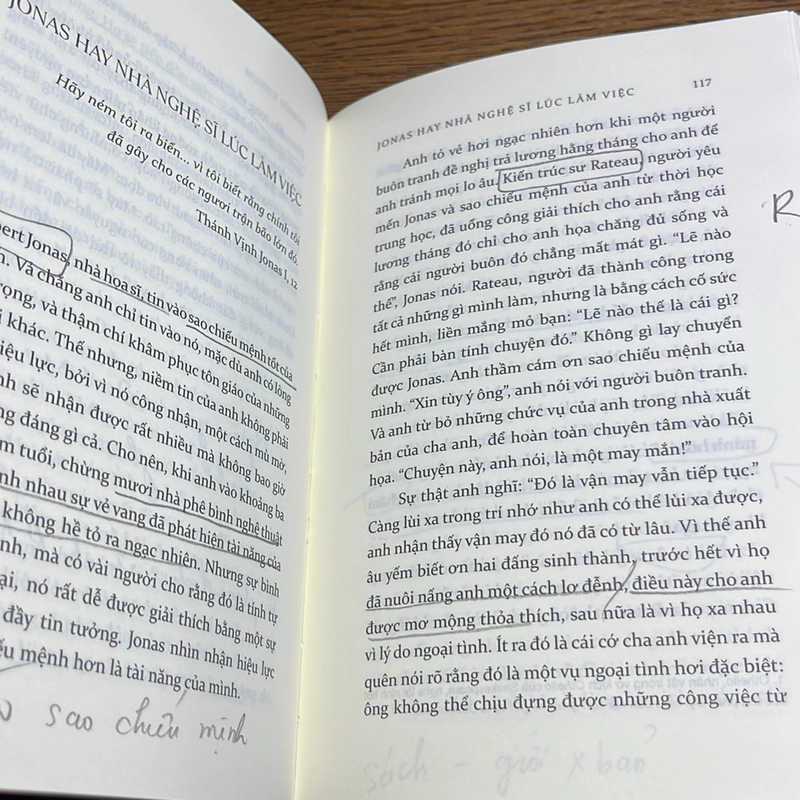 JONAS HAY NHÀ NGHỆ SĨ LÚC LÀM VIỆC
Hãy ném tôi ra biển... vì tôi biết rằng chính tôi
đã gây cho các người trận bão lớn đó.
Thánh Vịnh Jonas I, 12
Jonas, nhà họa sĩ, tin vào sao chiếu mệnh tốt của
Và chẳng anh chỉ tin vào nó, mặc dù anh có lòng
trọng, và thậm chí khâm phục tôn giáo của những
khác. Thế nhưng, niềm tin của anh không phải
hiệu lực, bởi vì nó công nhận, một cách mù mờ,
sẽ nhận được rất nhiều mà không bao giờ
đáng gì cả. Cho nên, khi anh vào khoảng ba
tuổi, chừng mươi nhà phê bình nghệ thuật
nhau sự vẻ vang đã phát hiện tài năng của
không hề tỏ ra ngạc nhiên. Nhưng sự bình
mà có vài người cho rằng đó là tính tự
nó rất dễ được giải thích bằng một sự
đầy tin tưởng. Jonas nhìn nhận hiệu lực
mệnh hơn là tài năng của mình.
sao chiếu mệnh
JONAS HAY NHÀ NGHỆ SĨ LÚC LÀM VIỆC 117
Anh tỏ vẻ hơi ngạc nhiên hơn khi một người
buôn tranh đề nghị trả lương hằng tháng cho anh để
anh tránh mọi lo âu. Kiến trúc sư Rateau, người yêu
mến Jonas và sao chiếu mệnh của anh từ thời học
trung học, đã uổng công giải thích cho anh rằng cái
lương tháng đó chỉ cho anh họa chăng đủ sống và
rằng cái người buôn đó chẳng mất mát gì. “Lẽ nào
thế”, Jonas nói. Rateau, người đã thành công trong
tất cả những gì mình làm, nhưng là bằng cách cố sức
hết mình, liền mắng mỏ bạn: “Lẽ nào thế là cái gì?
Cần phải bàn tính chuyện đó.” Không gì lay chuyển
được Jonas. Anh thầm cám ơn sao chiếu mệnh của
mình. “Xin tùy ý ông”, anh nói với người buôn tranh.
Và anh từ bỏ những chức vụ của anh trong nhà xuất
bản của cha anh, để hoàn toàn chuyên tâm vào hội
họa. “Chuyện này, anh nói, là một may mắn!”
Sự thật anh nghĩ: “Đó là vận may vẫn tiếp tục.”
Càng lùi xa trong trí nhớ như anh có thể lùi xa được,
anh nhận thấy vận may đó nó đã có từ lâu. Vì thế anh
âu yếm biết ơn hai đấng sinh thành, trước hết vì họ
đã nuôi nấng anh một cách lơ đễnh, điều này cho anh
được mơ mộng thỏa thích, sau nữa là vì họ xa nhau
vì lý do ngoại tình. Ít ra đó là cái cớ cha anh viện ra mà
quên nói rõ rằng đó là một vụ ngoại tình hơi đặc biệt:
ông không thể chịu đựng được những công việc từ
R
sách -